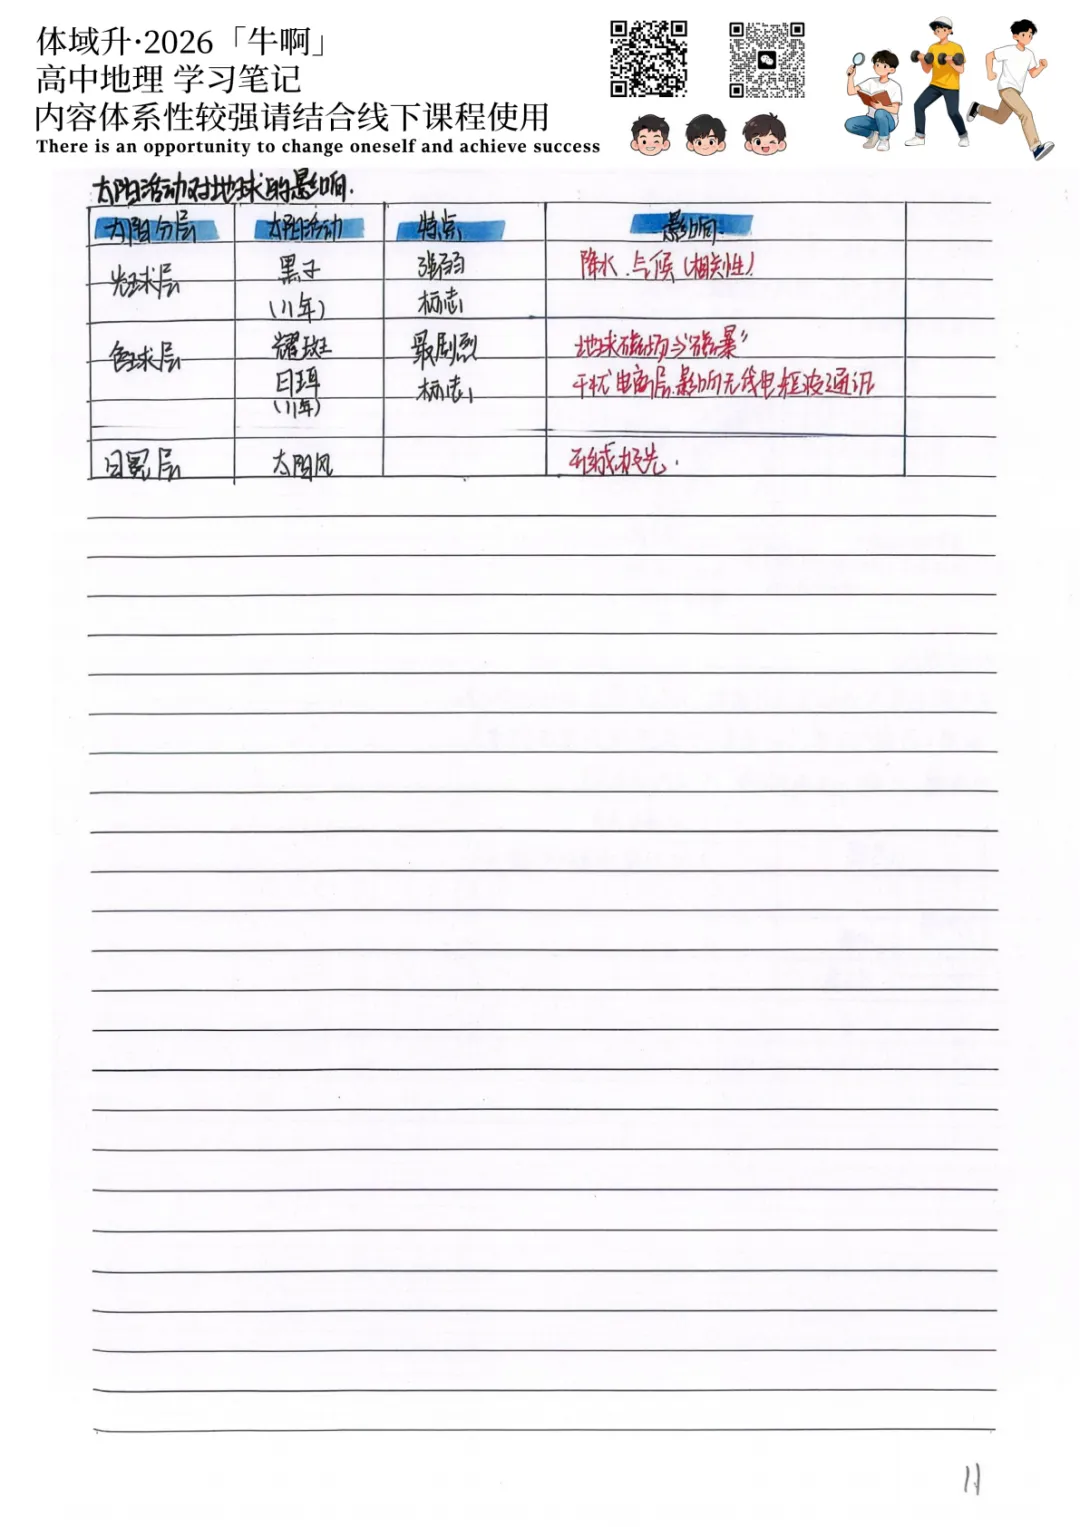 体域升·2026「牛啊」
高中地理 学习笔记
内容体系性较强请结合线下课程使用
There is an opportunity to change oneself and achieve success
太阳活动对地球的影响.
太阳分层 太阳活动 特点 影响
光球层 黑子 强弱 降水、气候(相关性)
(11年) 标志
色球层 耀斑 最剧烈 地球磁场→"磁暴"
日珥 标志 干扰电离层.影响无线电短波通讯
(11年)
日冕层 太阳风 形成极光.
11